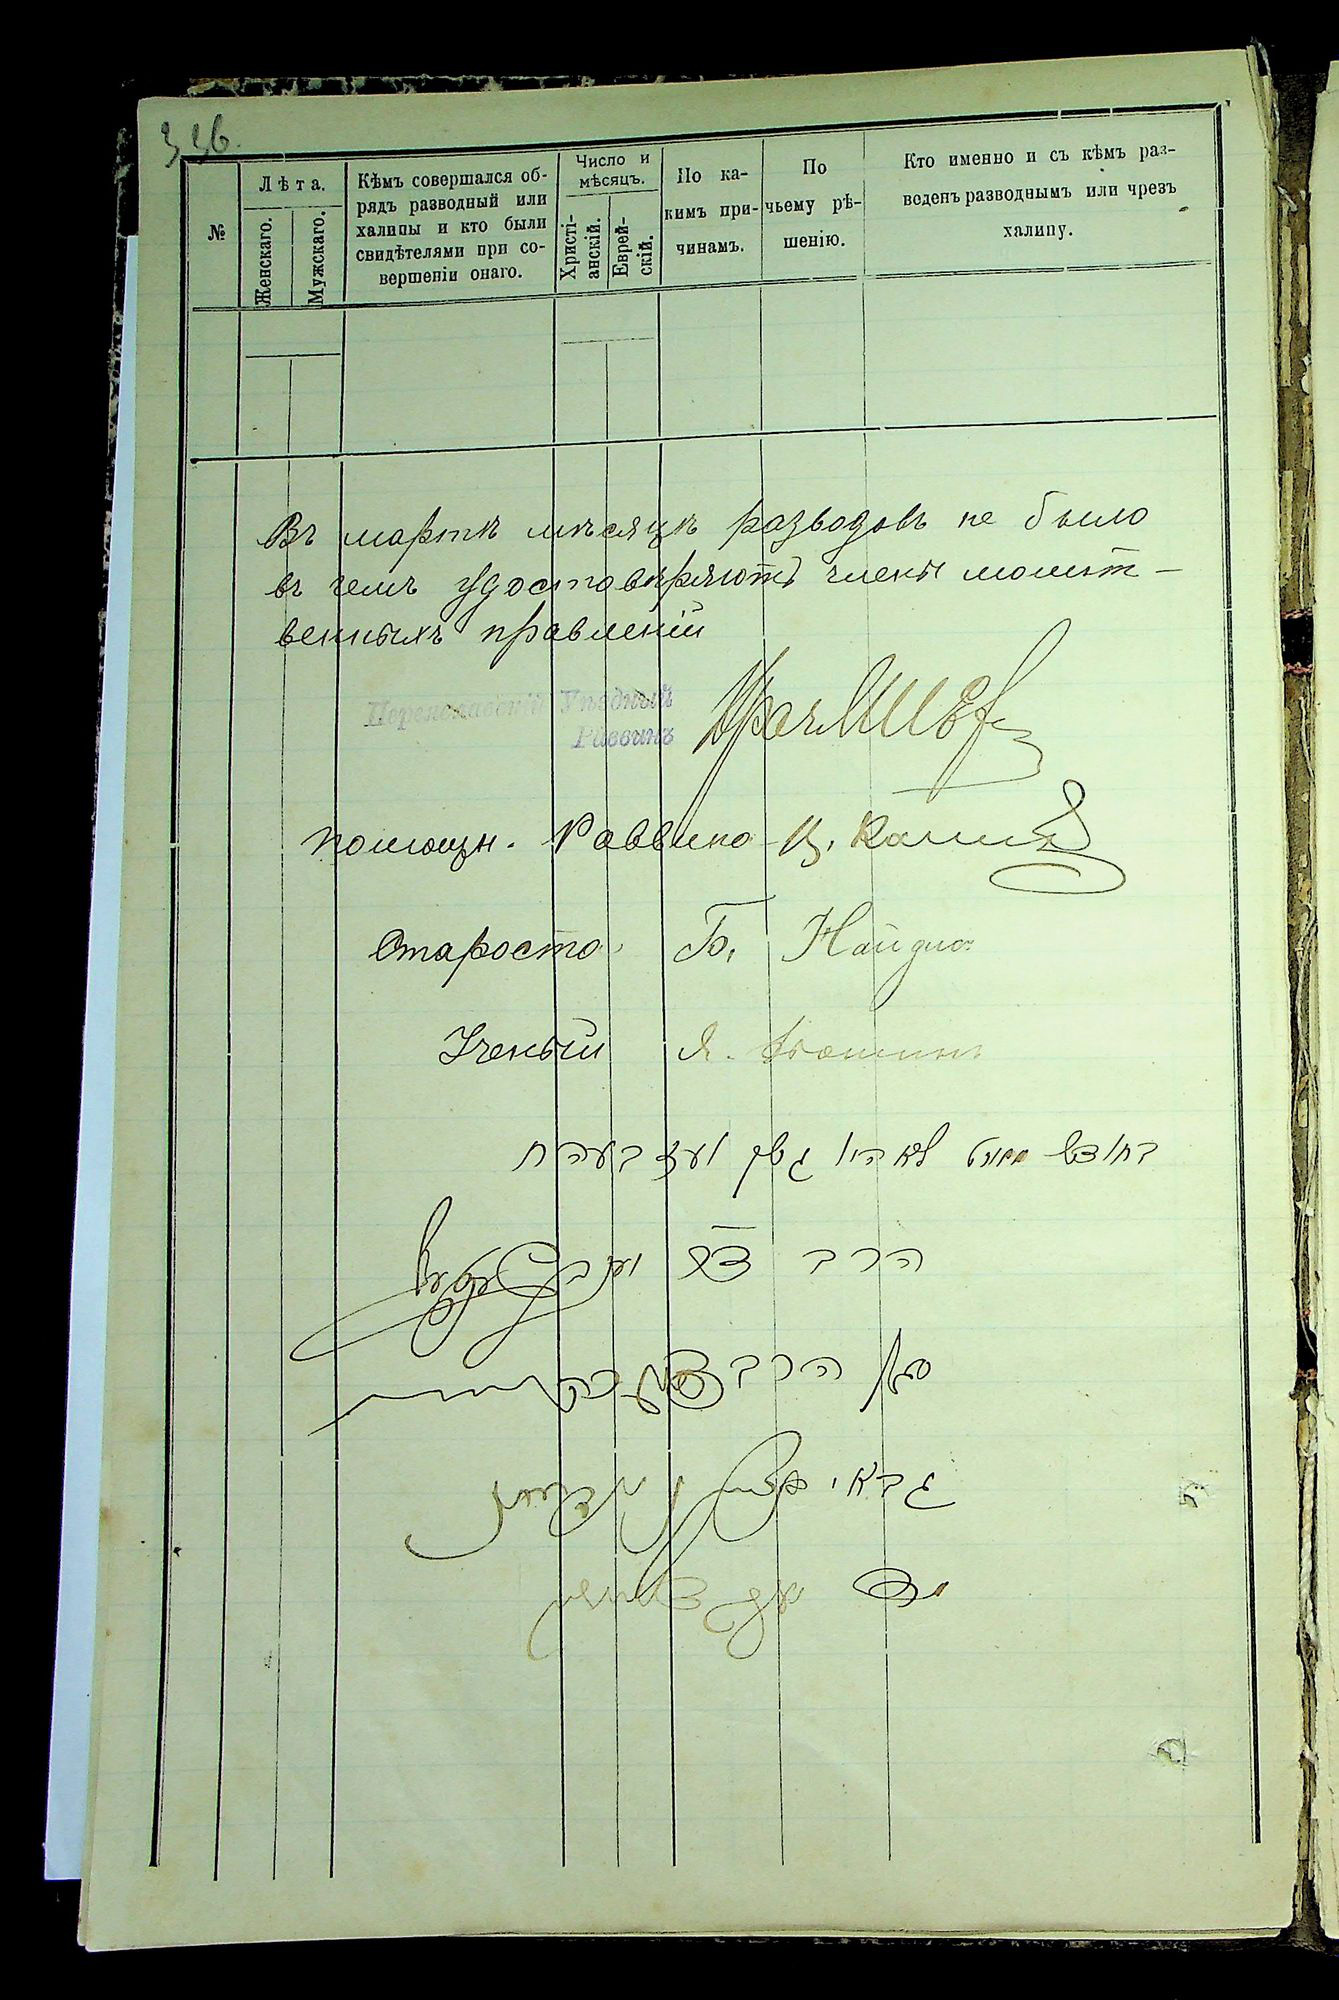 336.
№
Лѣта.
Женскаго.
Мужскаго.
Кѣмъ совершался об-
рядъ разводный или
халицы и кто были
свидѣтелями при со-
вершеніи онаго.
Число и
мѣсяцъ.
Христі-
анскій.
Еврей-
скій.
По ка-
кимъ при-
чинамъ.
По
чьему рѣ-
шенію.
Кто именно и съ кѣмъ раз-
веденъ разводнымъ или чрезъ
халицу.
Въ мартѣ мѣсяцѣ разводовъ не было
въ чемъ удостовѣряютъ члены молит-
венныхъ правленій
Переяславскій Уѣздный
Раввинъ
Помощн. Раввина
Староста Б. Найда
Ученый Я.
בחודש מארט לא היו גטין ועז בעה״ח
הרב
סגן הרב
גבאי